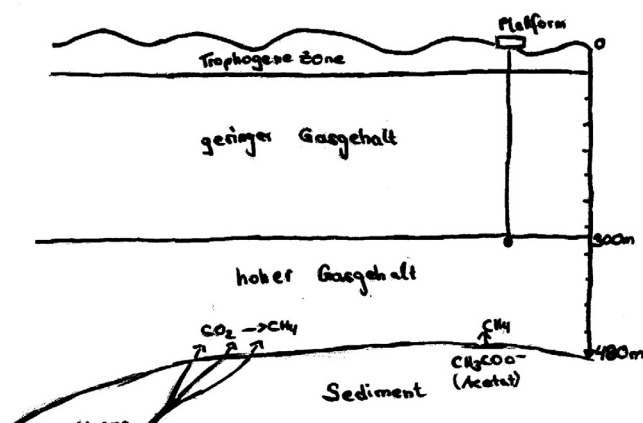 Platform
0
Trophogene zone
geringer Gasgehalt
300m
hoher Gasgehalt
CO₂ → CH₄
CH₄
480m
CH₃COO⁻
(Acetat)
Sediment